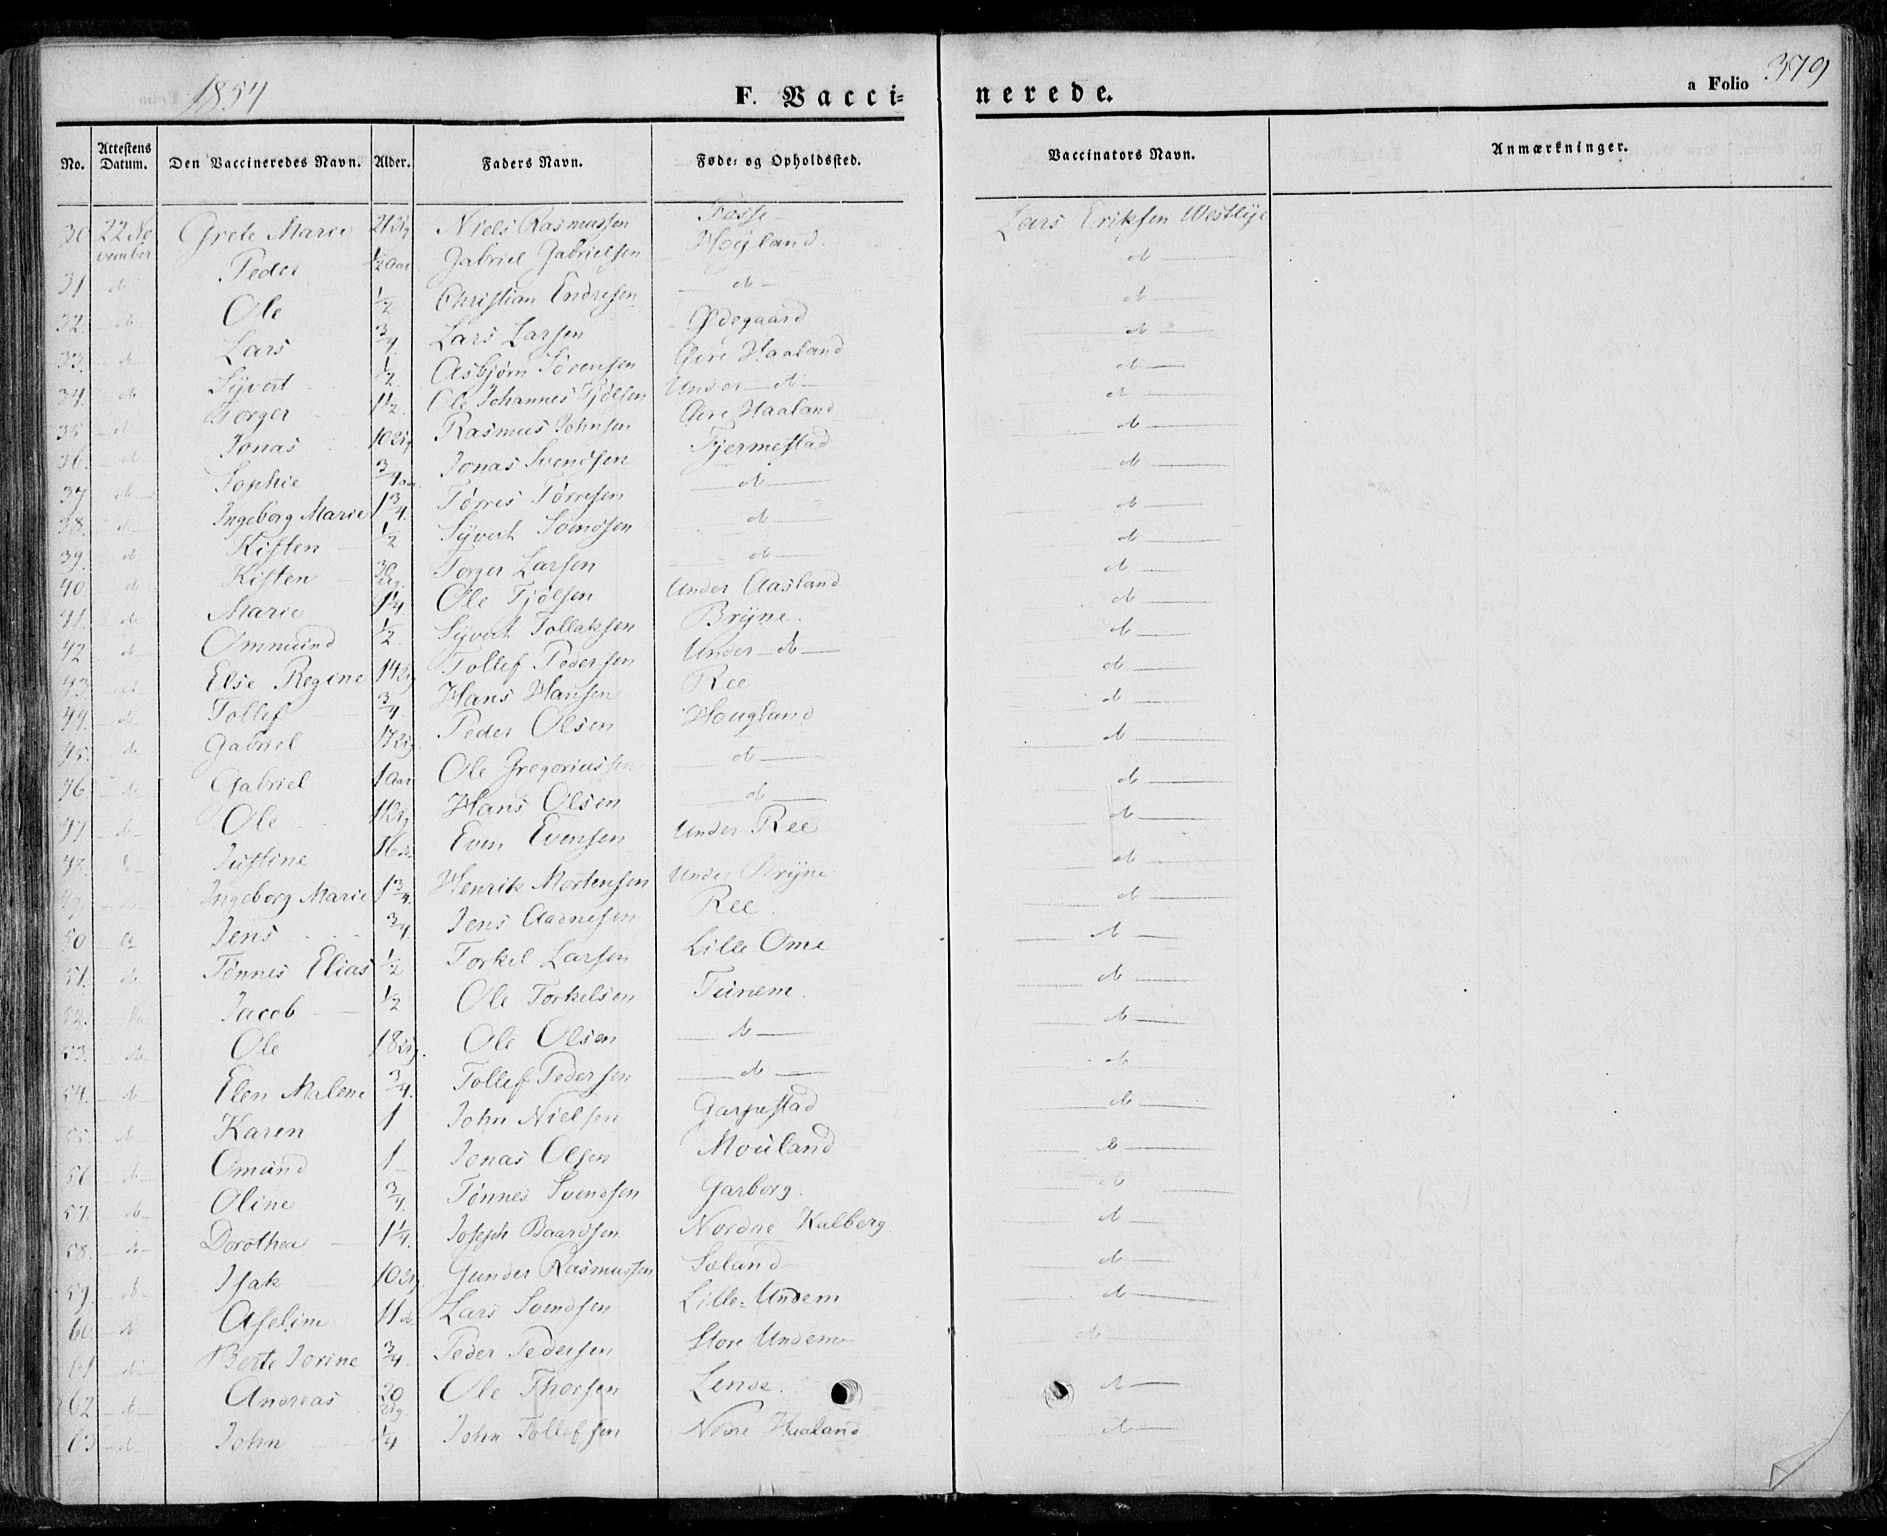 1854 F. Vacci= nerede. a Folio 379
No. Attestens Datum. Den Vaccineredes Navn. Alder. Faders Navn. Føde= og Opholdssted. Vaccinators Navn. Anmærkninger.
30 22 No vember Grete Marie Niels Rasmussen Fosse Lars Eriksen Westlye
31 d Peder 1/2 aar Gabriel Gabrielsen Høyland d
32. d Ole 1/2 Christian Endresen d d
33. d Lars 3/4 Lars Larsen Ødegaard d
34. d Syvert 1/2 Asbjørn Sørensen Øvre Haaland d
35 d Torger 1 1/2 Ole Johannes Tjølsen Under d d
36. d Jonas Rasmus Johnsen Øvre Haaland d
37 d Sophie 3/4 aar Jonas Svendsen Tjermestad d
38. d Ingeborg Marie 1 3/4. Tørres Tørresen d d
39. d Kisten 1/2 Syvert Svendsen d d
40 d Kisten Torger Larsen d d
41. d Marie 1 1/4 Ole Tjølsen Under Aasland d
42 d Ommund 1/2 Syvert Tollaksen Bryne. d
43. d Else Regine Tollef Pedersen Under d d
44. d Tollef 3/4 Hans Hansen Ree d
45. d Gabriel Peder Olsen Hougland d
46 d Gabriel 1 aar Ole Gregoriussen d d
47 d Ole Hans Olsen d d
48. d Justine Even Evensen Under Ree d
49. Ingeborg Marie 1 3/4. Henrik Mortensen Under Bryne d
50 d Jens 3/4 Jens Aadnesen Ree d
51. d Tønnes Elias 1/2 Torkel Larsen Lille Ome d
52. d Jacob 1/2 Ole Torkelsen Tunem. d
53. d Ole Ole Olsen d d
54. d Elen Malene 3/4. Tollef Pedersen d d
55 d Karen 1 John Nielsen Garpestad d
56 d Omund 1 Jonas Olsen Mouland d
57. d Oline 3/4. Tønnes Svendsen Garborg. d
58. d Dorothea 1 1/4. Joseph Baardsen Nordre Kalberg d
59. d Isak Gunder Rasmussen Søland d
60 d Aseline 11 d Lars Svendsen Lille=Undem d
61 d Berte Jorine 3/4. Peder Pedersen Store Undem d
62 d Andreas Ole Thorsen Lende. d
63 d John 1/4 John Tollefsen Nedre Haaland d